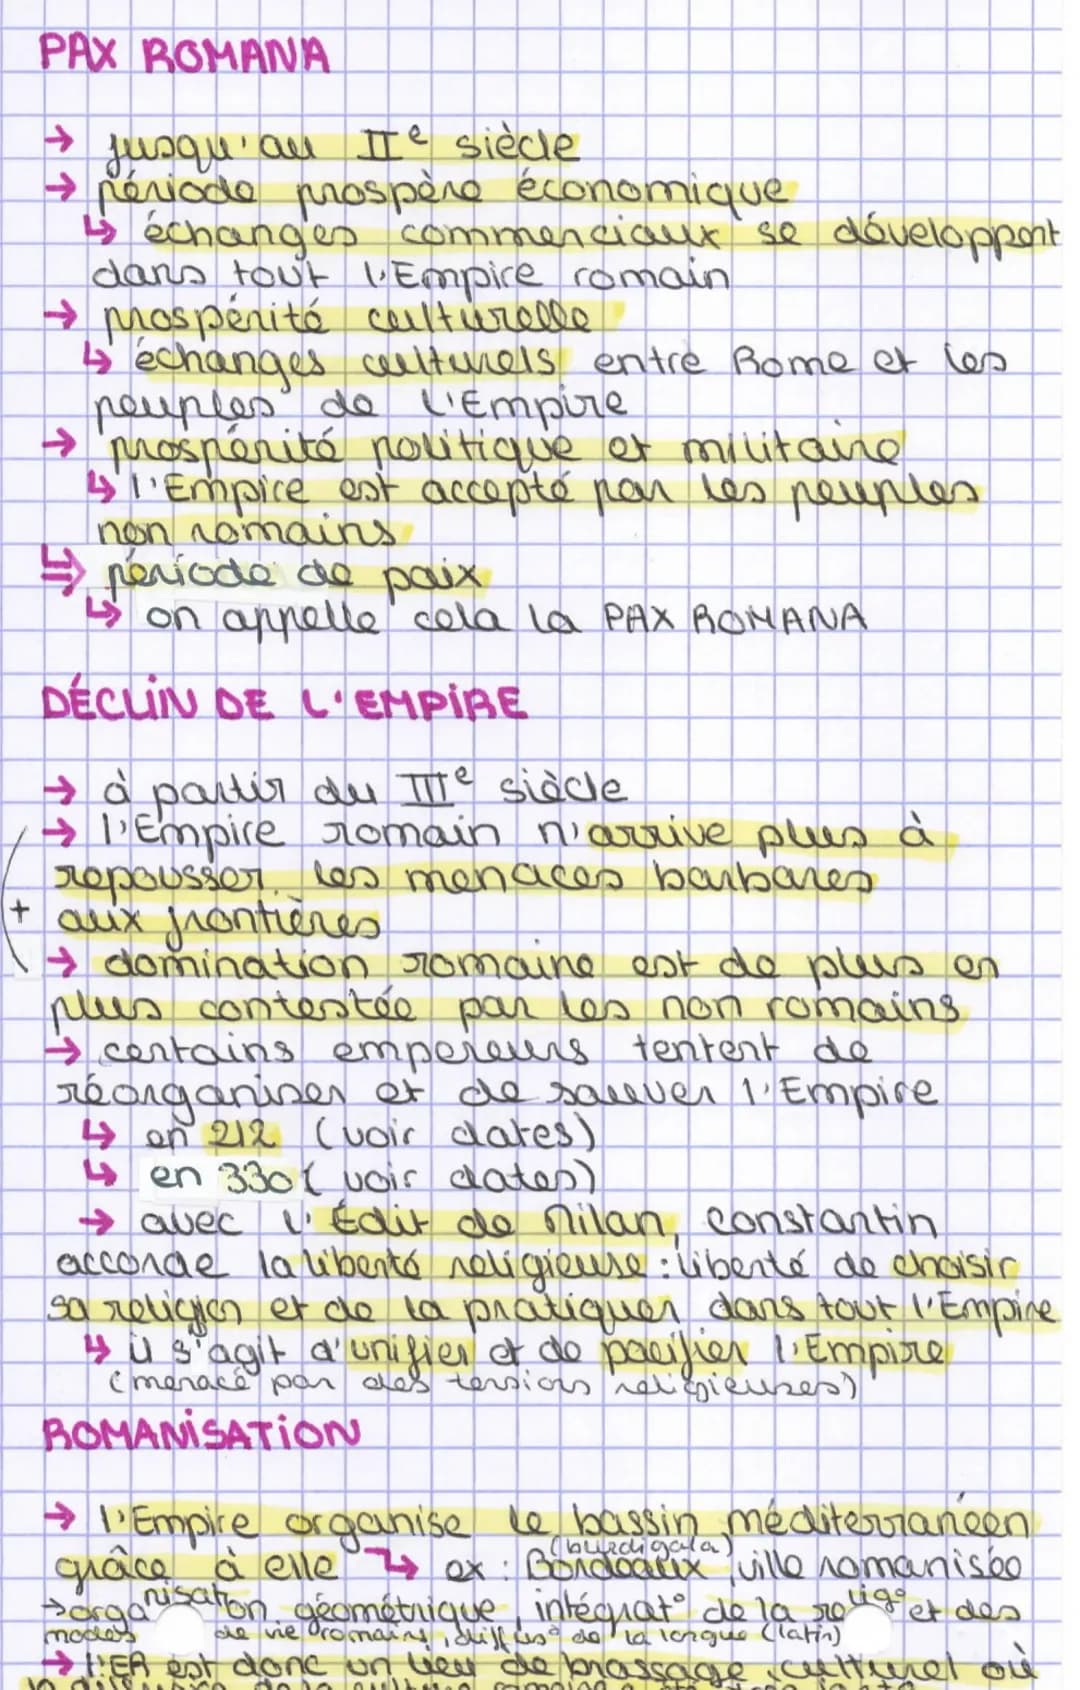 PAX ROMANA
→ jusqu'au IIe siècle
→ période prospère économique
↳ échanges commerciaux se développent
dans tout l'Empire romain
→ prospérité culturelle
↳ échanges culturels entre Rome et les
peuples de l'Empire
→ prospérité politique et militaire
↳ l'Empire est accepté par les peuples
non romains
↳ période de paix
↳ on appelle cela la PAX ROMANA
DÉCLIN DE L'EMPIRE
→ à partir du IIIe siècle
→ l'Empire romain n'arrive plus à
repousser les menaces barbares
+ aux frontières
→ domination romaine est de plus en
plus contestée par les non romains
→ certains empereurs tentent de
réorganiser et de sauver l'Empire
↳ en 212 (voir dates)
↳ en 330 (voir dates)
→ avec l'Édit de Milan, Constantin
accorde la liberté religieuse : liberté de choisir
sa religion et de la pratiquer dans tout l'Empire
↳ il s'agit d'unifier et de pacifier l'Empire
(menacé par des tensions religieuses)
ROMANISATION
→ l'Empire organise le bassin méditerranéen
(burdigala)
grâce à elle ↳ ex : Bordeaux, ville romanisée
→ organisation géométrique, intégrat° de la relig° et des
modes de vie romains, diffus° de la langue (latin)
→ l'ER est donc un lieu de brassage culturel où
la diffusion de la culture romaine a été